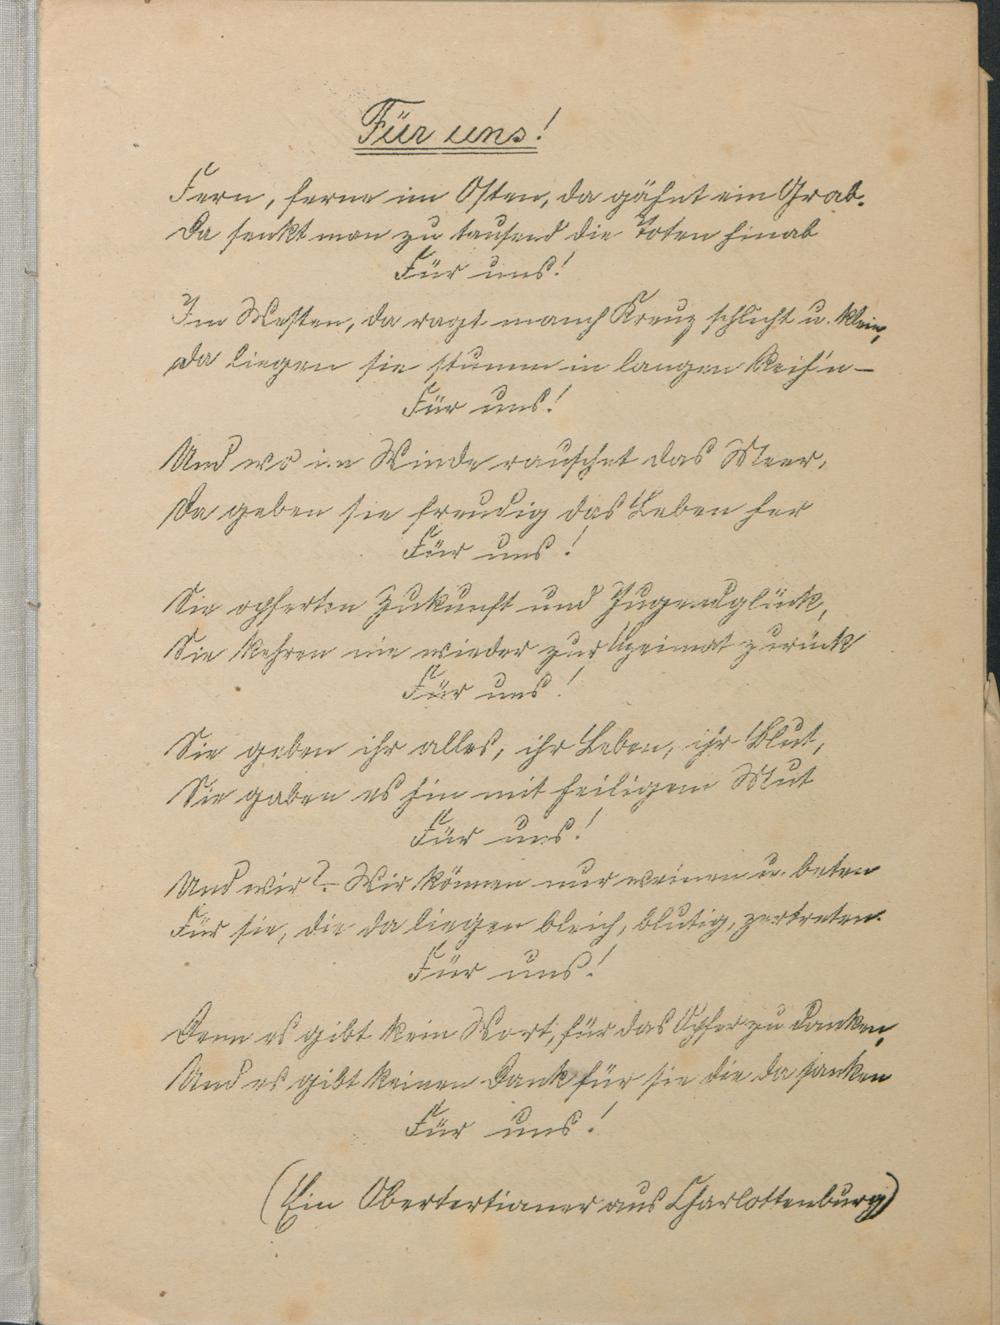 Für uns!
Fern, ferne im Osten, da gähnt ein Grab.
Da senkt man zu tausend die Toten hinab
Für uns!
Im Westen, da ragt manch Kreuz schlicht u. klein,
Da liegen sie stumm in langen Reih'n –
Für uns!
Und wo im Winde rauschet das Meer,
Da geben sie freudig das Leben her
Für uns!
Sie opferten Zukunft und Jugendglück,
Sie kehren nie wieder zur Heimat zurück
Für uns!
Sie geben ihr alles, ihr Leben, ihr Blut,
Sie gaben es hin mit heiligem Mut
Für uns!
Und wir? – Wir können nur weinen u. beten
Für sie, die da liegen bleich, blutig, zertreten.
Für uns!
Denn es gibt kein Wort, für das Opfer zu danken,
Und es gibt keinen Dank für sie die da sanken
Für uns!
(Ein Obertertianer aus Charlottenburg)